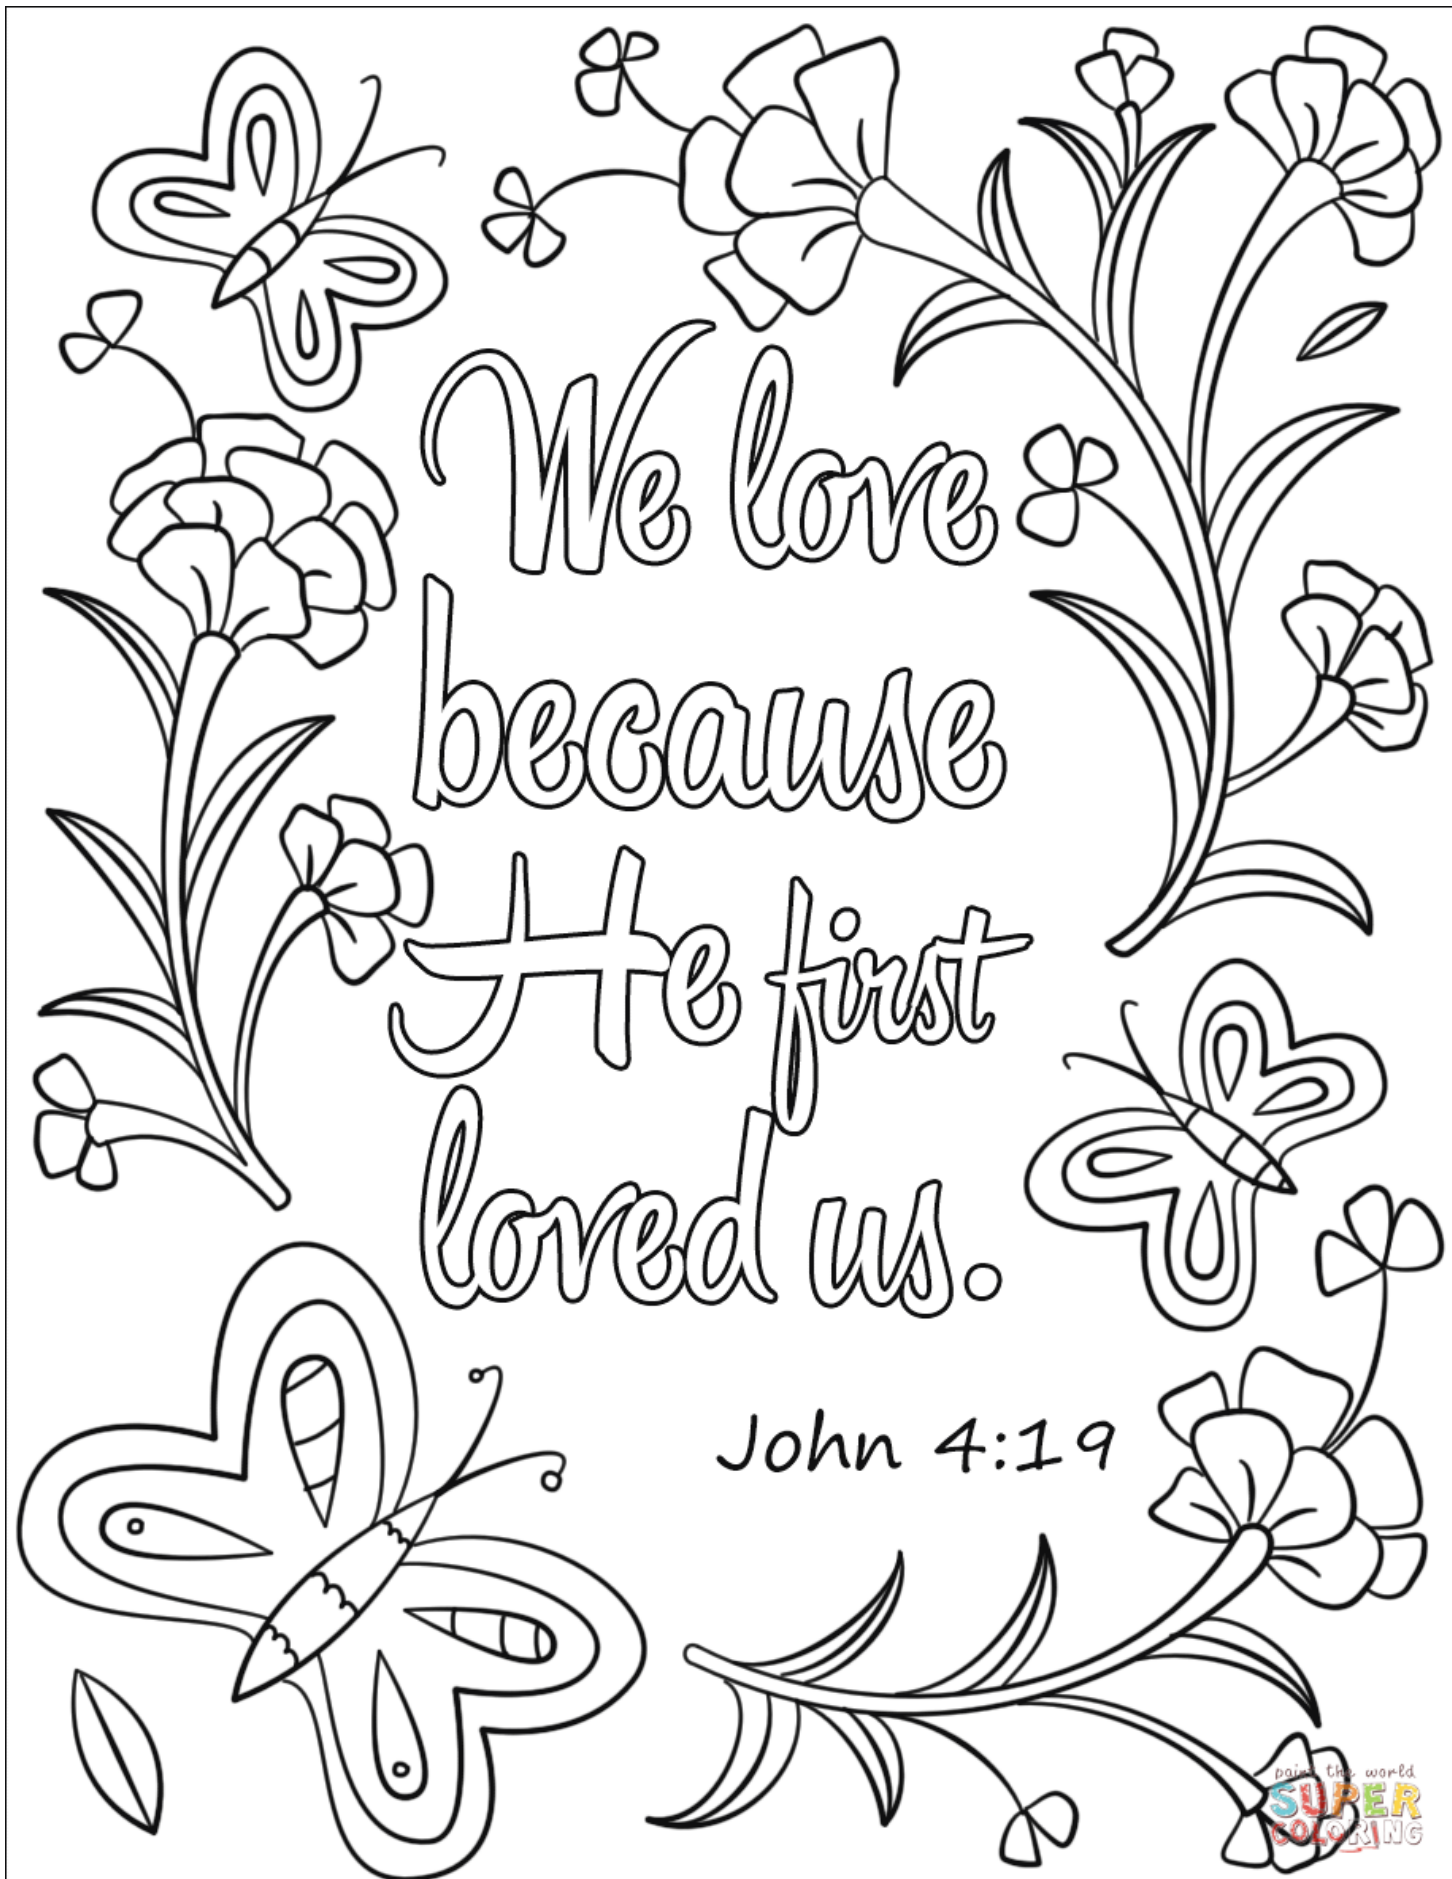 We love
because
He first
loved us.
John 4:19
paint the world
SUPER
COLORING